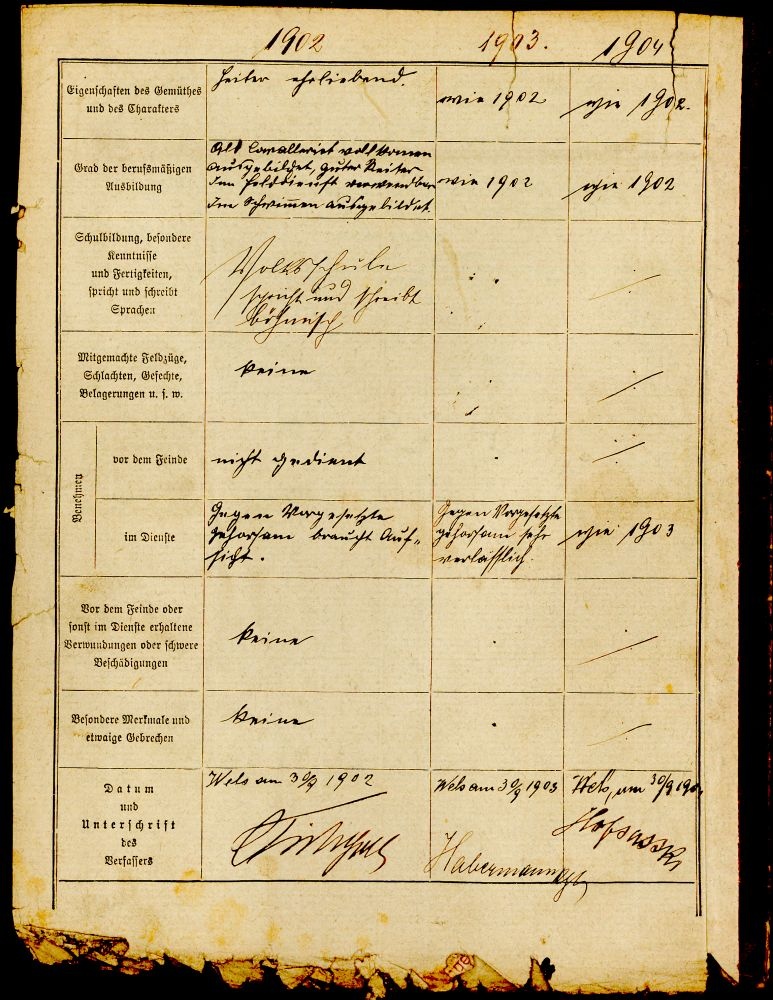 1902
1903.
1904
Eigenschaften des Gemüthes
und des Charakters
heiter ehrliebend.
wie 1902
wie 1902.
Grad der berufsmäßigen
Ausbildung
Als Cavallerist vollkomen
ausgebildet, guter Reiter
Im Felddienst verwendbar
Im Schwimen ausgebildet.
wie 1902
wie 1902
Schulbildung, besondere
Kenntnisse
und Fertigkeiten,
spricht und schreibt
Sprachen
Volksschule
spricht und schreibt
böhmisch
Mitgemachte Feldzüge,
Schlachten, Gefechte,
Belagerungen u. s. w.
keine
Benehmen
vor dem Feinde
nicht gedient
im Dienste
Gegen Vorgesetzte
gehorsam braucht Auf-
sicht.
Gegen Vorgesetzte
gehorsam sehr
verlässlich.
wie 1903
Vor dem Feinde oder
sonst im Dienste erhaltene
Verwundungen oder schwere
Beschädigungen
keine
Besondere Merkmale und
etwaige Gebrechen
keine
Datum
und
Unterschrift
des
Verfassers
Wels am 30/9 1902
Wels am 30/9 1903
Wels, am 30/9 190
Habermann